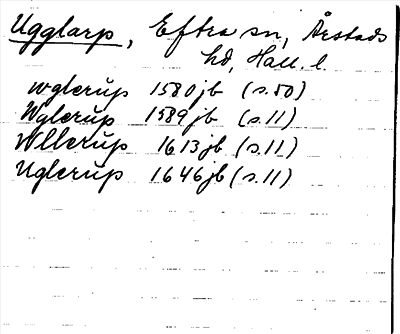 Ugglarp, Eftra sn, Årstads
hd, Hall. l.
wglerup 1580jb (s.50)
Wglerup 1589jb (s.11)
Wllerup 1613jb (s.11)
Uglerup 1646jb (s.11)